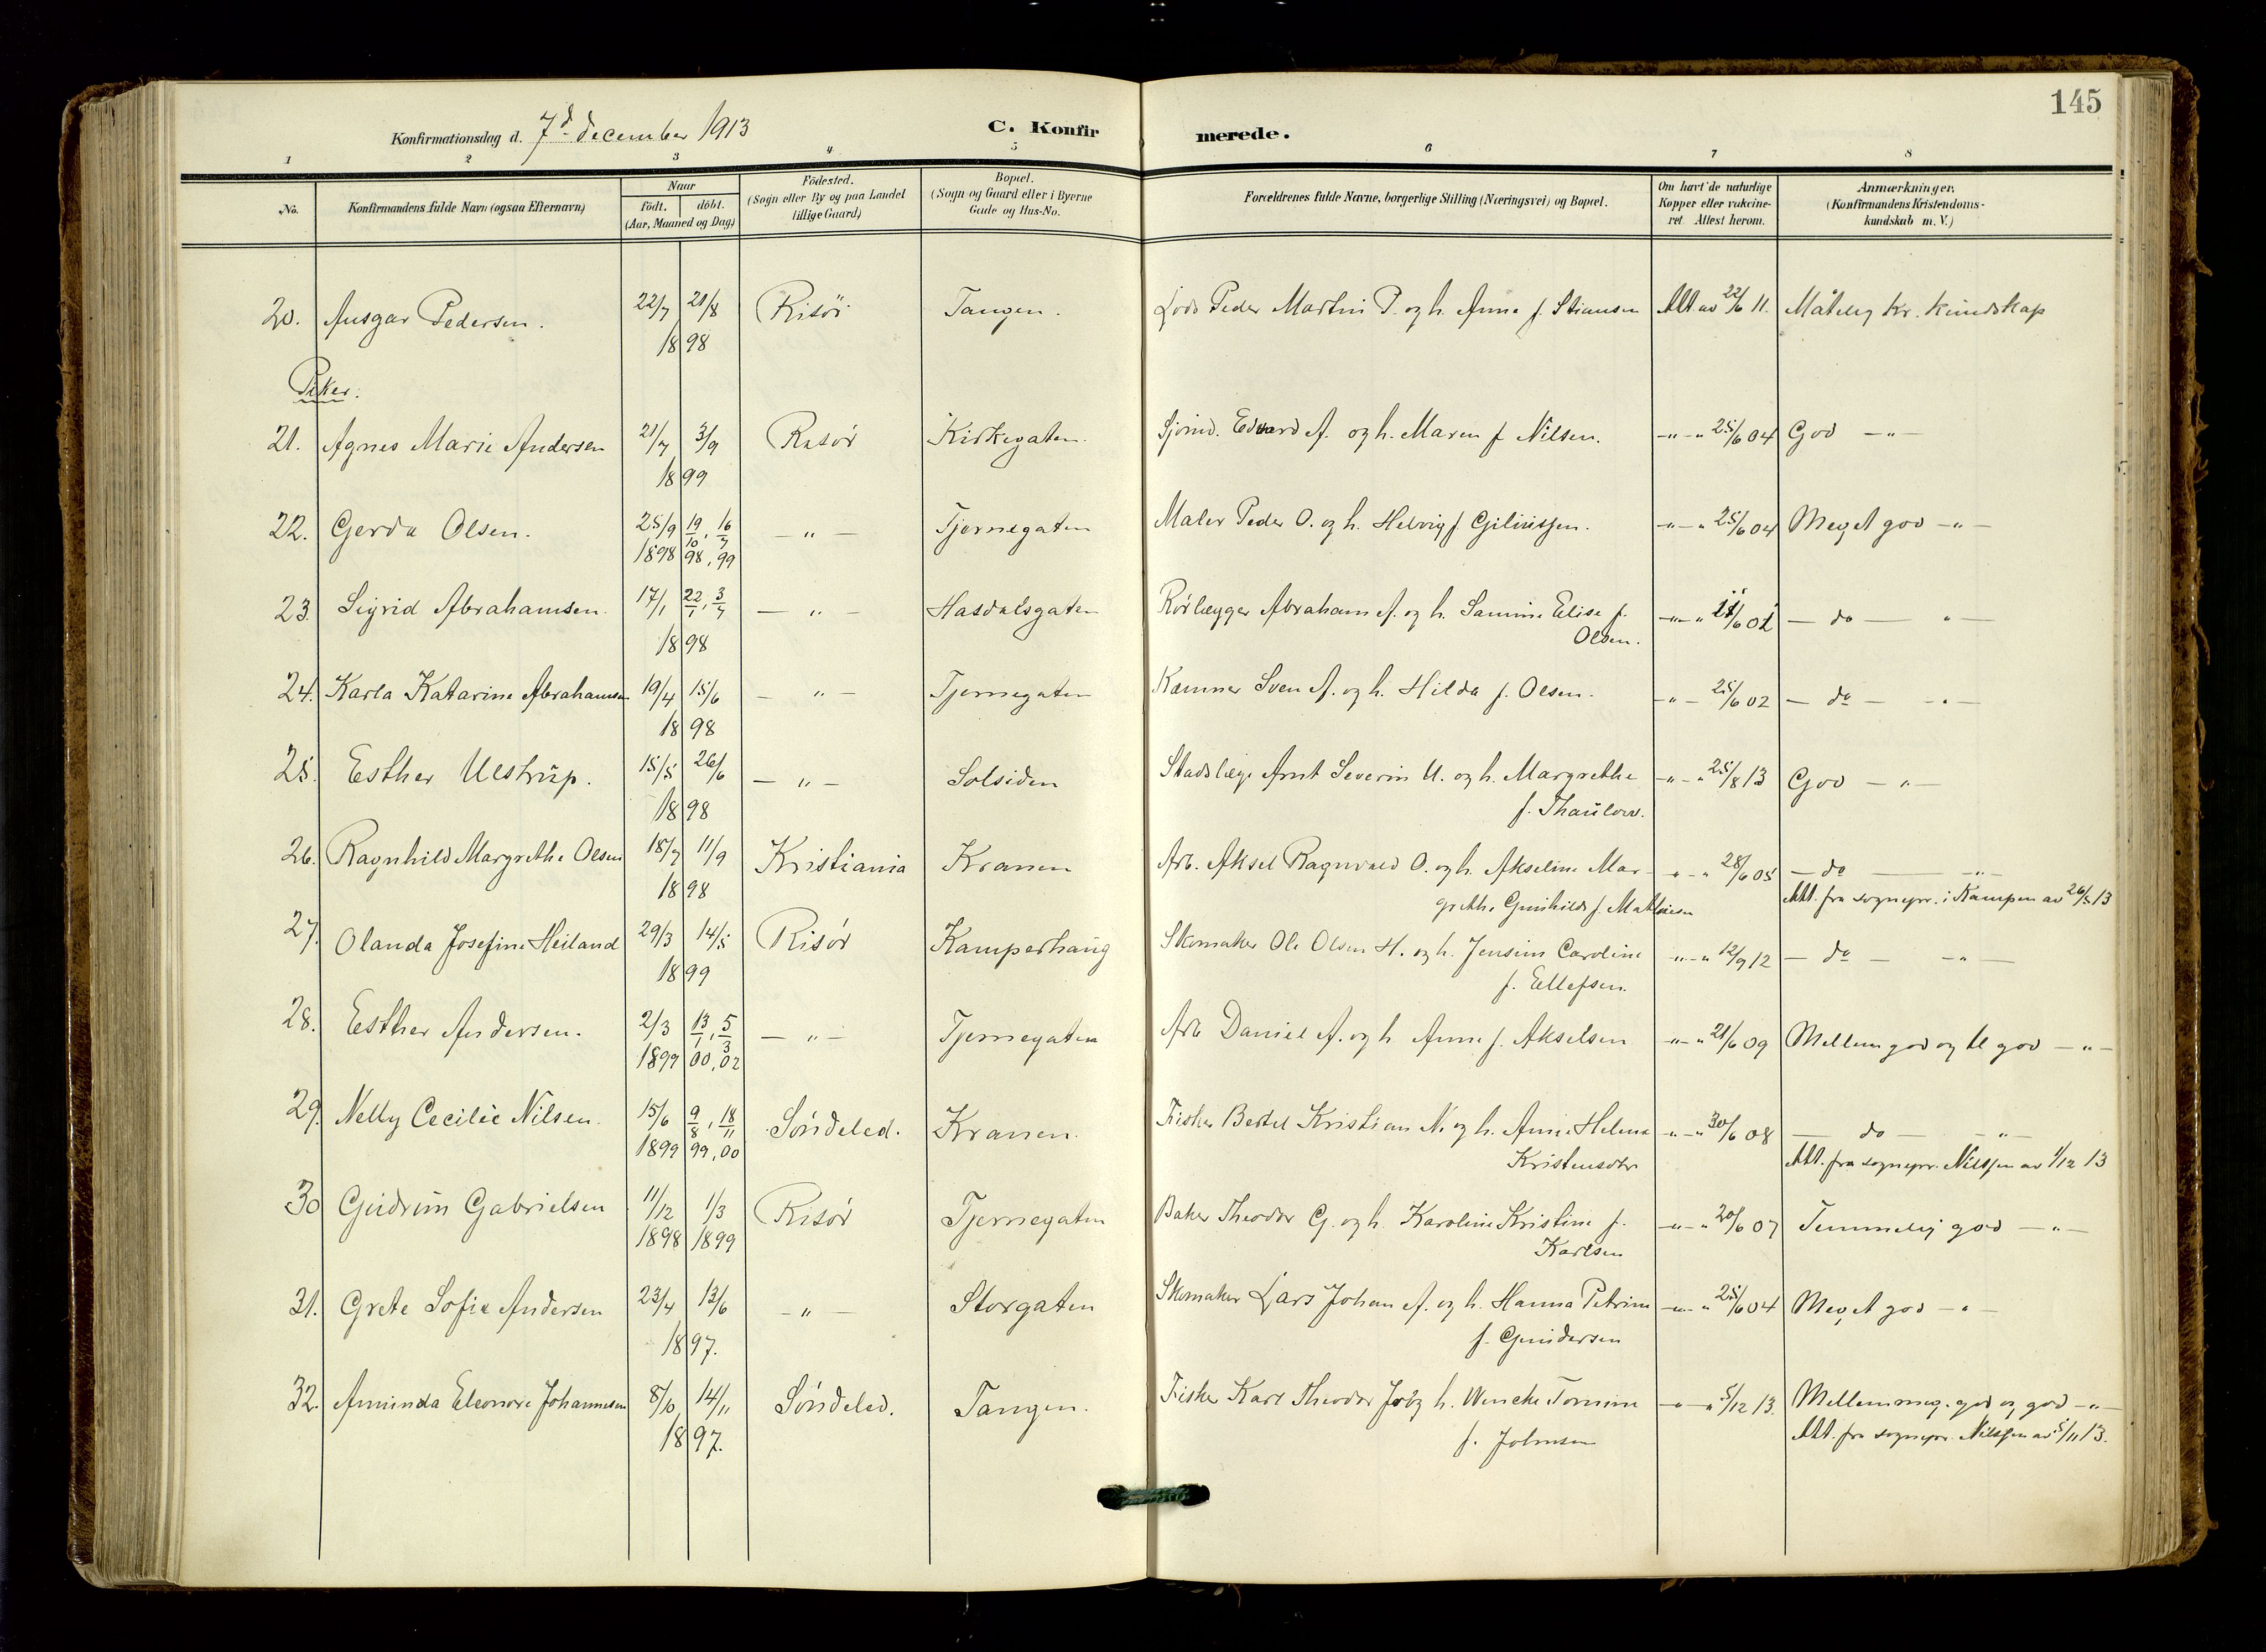 145
Konfirmationsdag d. 7d december 1913 C. Konfirmerede.
1 2 3 4 5 6 7 8
No. Konfirmandens fulde Navn (ogsaa Efternavn) Naar födt. döbt. (Aar, Maaned og Dag) Födested. (Sogn eller By og paa Landet tillige Gaard) Bopæl. (Sogn og Gaard eller i Byerne Gade og Hus-No. Forældrenes fulde Navne, borgerlige Stilling (Næringsvei) og Bopæl. Om havt de naturlige Kopper eller vakcineret Attest herom. Anmærkninger. (Konfirmandens Kristendomskundskab m. V.)
20. Ansgar Pedersen. 22/7 21/8 Risör Tangen. Lods Peder Martin P. og h. Anna f. Stiansen Att. av 22/6 11. Måtelig kr. kundskap
1898
Piker.
21. Agnes Marie Andersen 21/7 3/9 Risör Kirkegaten. Sjömd. Edvard A. og h. Maren f. Nilsen. -"- " 25/6 04 God -"-
1899
22. Gerda Olsen. 25/9 19/10, 16/7 -"- Tjernegaten Maler Peder O. og h. Helvig f. -"- " 25/6 04 Meget god -"-
1898 98, 99
23. Sigrid Abrahamsen. 17/1 22/1, 3/7 -"- Hasdalsgaten Rörlægger Abraham A. og h. Samine Elise f. -"- " - do - " -
1898 Olsen.
24. Karla Katarine Abrahamsen 19/4 15/6 -"- Tjernegaten Kæmner Sven A. og h. Hilda f. Olsen. -"- 25/6 02 - do - -"-
1898
25. Esther Ulstrup. 15/5 26/6 -"- Solsiden Stadslæge Arnt Severin U. og h. Margrethe -"- " 25/8 13 God -"-
1898 f. Thaulow.
26. Ragnhild Margrethe Olsen 18/7 11/9 Kristiania Kranen Arb. Aksel Ragnvald O. og h. Akseline Mar- -"- " 28/6 05 - do - -"-
1898 grethe Gunhilda f. Mathiesen Att. fra sognepr. i Kampen av 26/8 13
27. Olanda Josefine Heiland 29/3 14/5 Risör Kamperhaug Skomaker Ole Olsen H. og h. Jensine Caroline -"- " 12/9 12 - do - -"-
1899 f. Ellefsen.
28. Esther Andersen. 2/3 13/1, 5/3 -"- Tjernegaten Arb Daniel A. og h. Anna f. Akselsen -"- " 21/6 09 Mellem god og tl god -"-
1899 00, 02
29. Nelly Cecilie Nilsen. 15/6 9/8, 18/11 Söndeled. Kranen. Fisker Bertel Kristian N. og h. Anne Helene -"- " 30/6 08 - do - -"-
1899 99, 00 Kristensdtr Att. fra sognepr. Nilssen av 1/12 13
30 Gudrun Gabrielsen 11/12 1/3 Risör Tjernegaten Baker Theodor G. og h. Karoline Kristine f. -"- " 20/6 07 Temmelig god -"-
1898 1899 Karlsen
31. Grete Sofie Andersen 23/4 13/6 -"- Storgaten Skomaker Lars Johan A. og h. Hanna Petrine -"- " 25/6 04 Meget god -"-
1897. f. Gundersen
32. Aminda Eleonore Johannesen 8/10 14/11 Söndeled. Tangen. Fisker Karl Theodor J. og h. Wencke Tomine -"- " 5/12 13. Mellem meg. god og god -"-
1897. f. Johnsen Att. fra sognepr. Nilssen av 5/11 13.